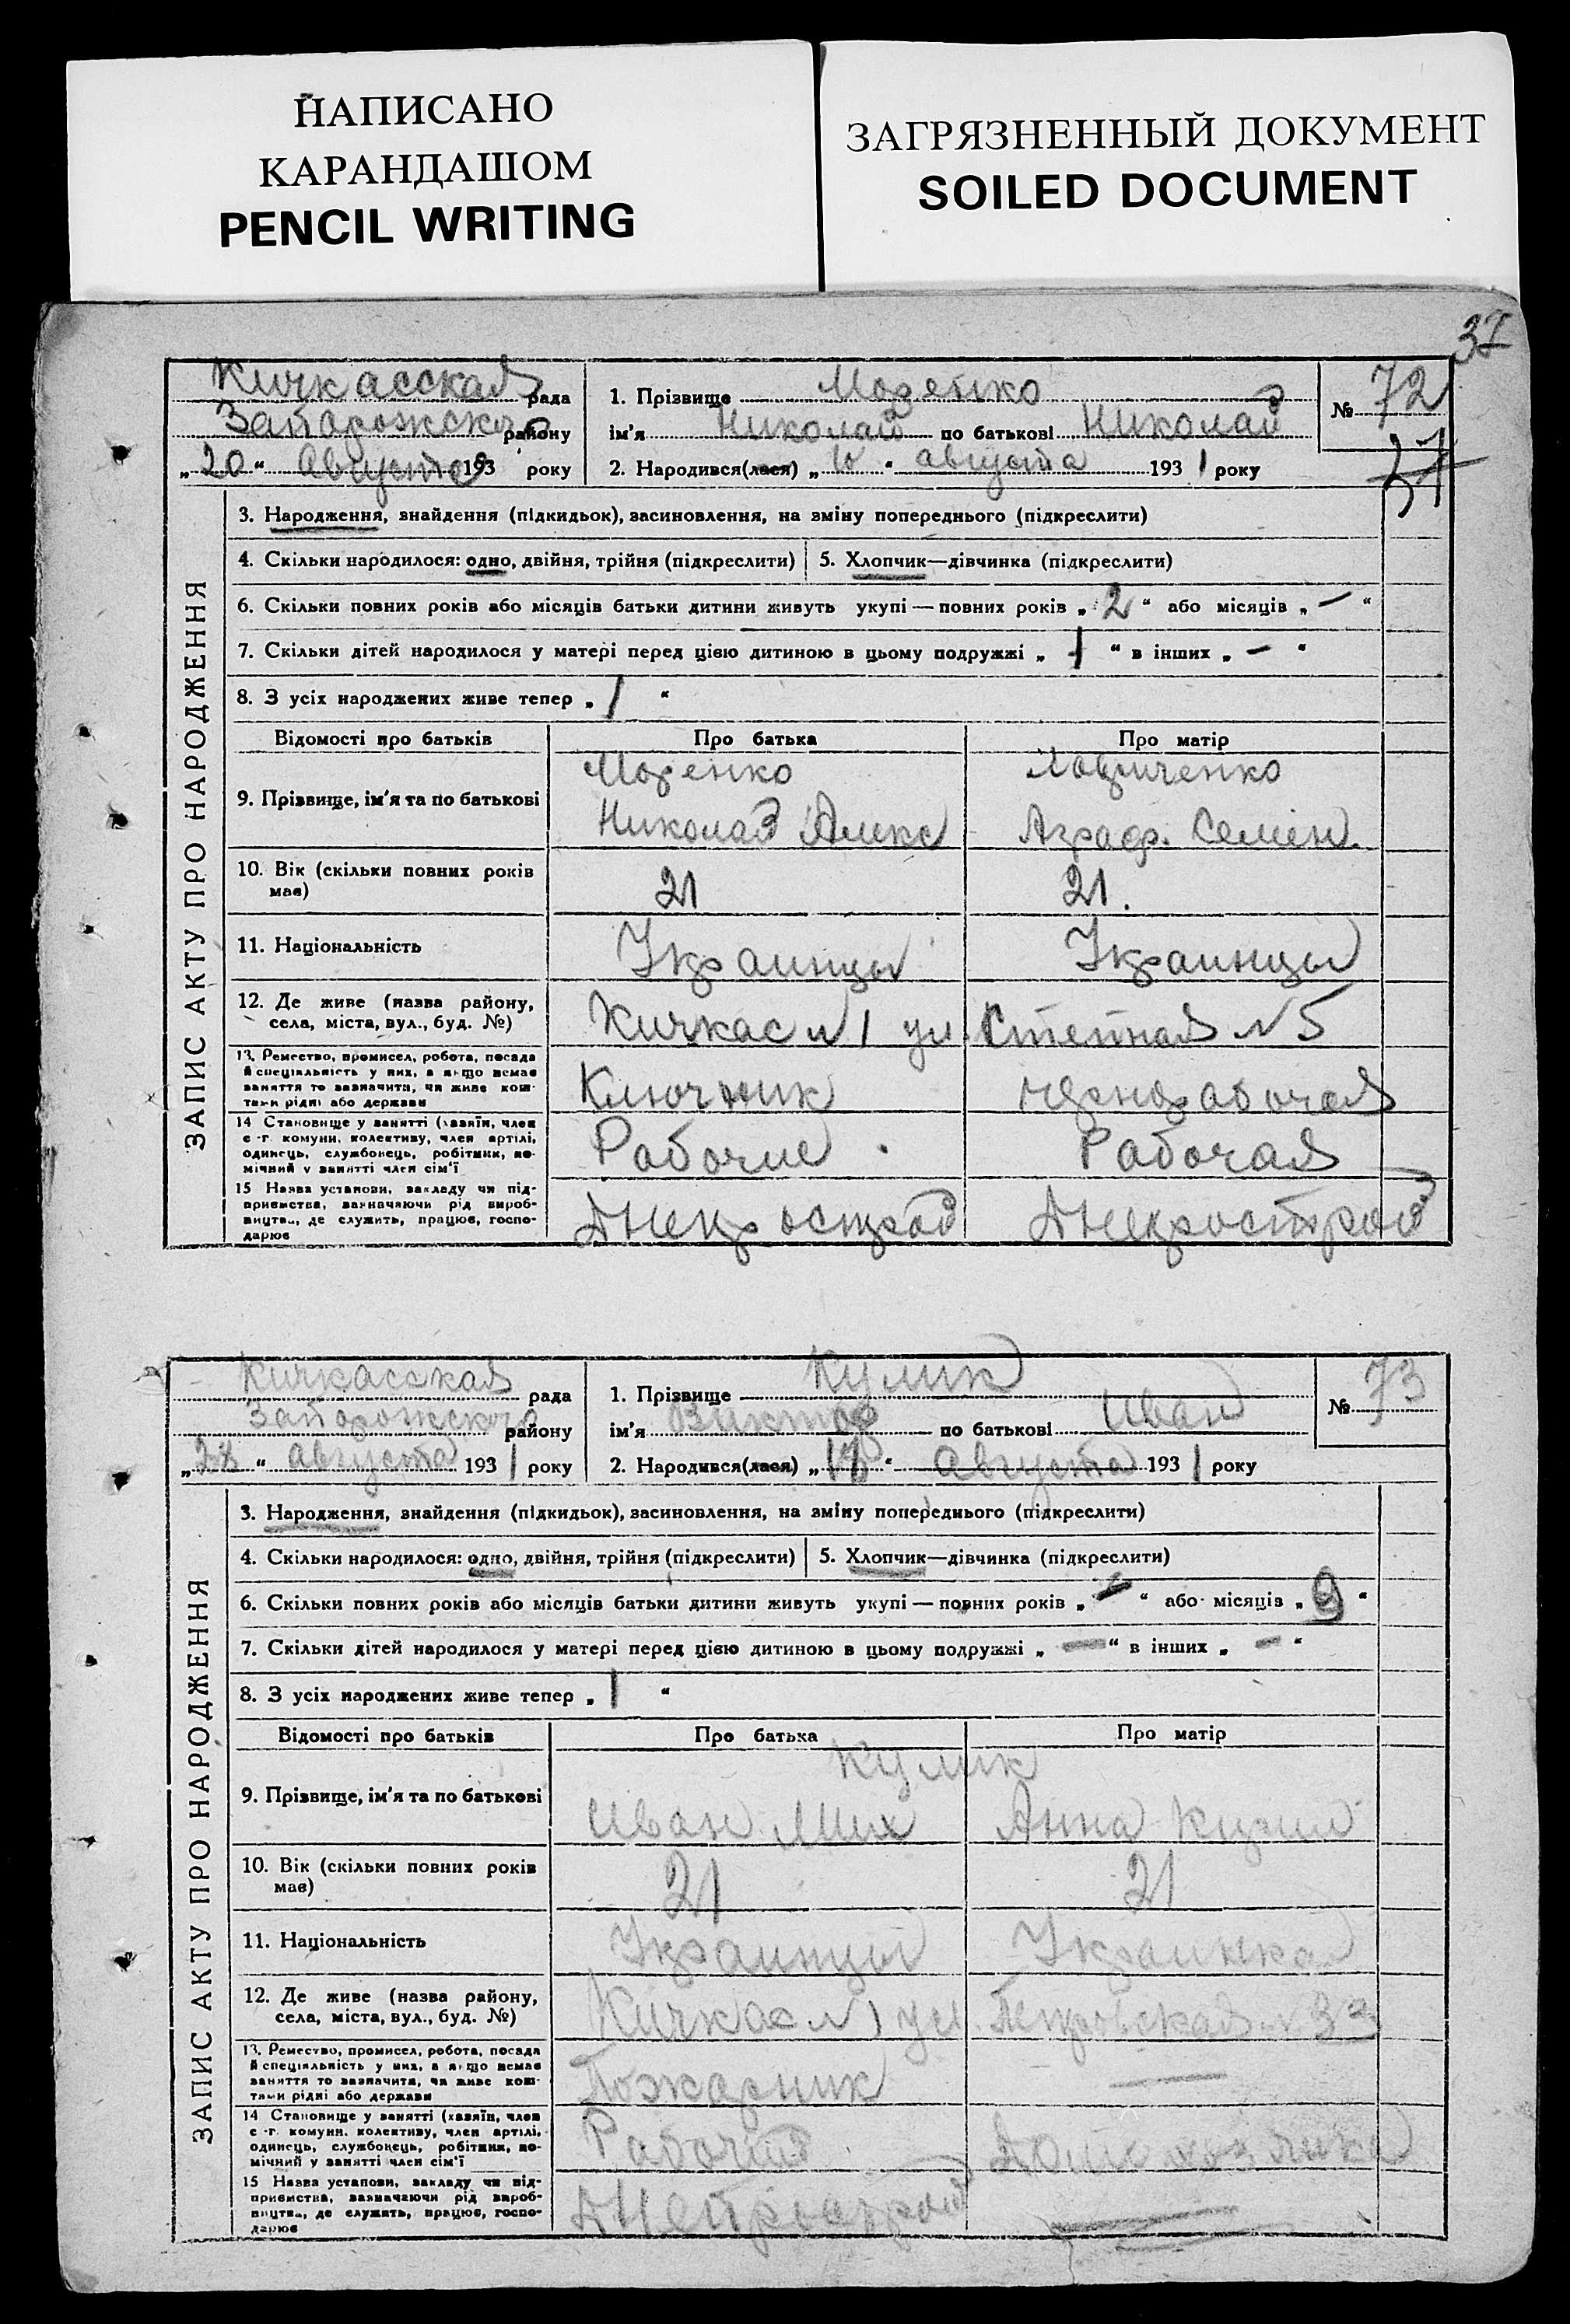 НАПИСАНО
КАРАНДАШОМ
PENCIL WRITING
ЗАГРЯЗНЕННЫЙ ДОКУМЕНТ
SOILED DOCUMENT
37
ЗАПИС АКТУ ПРО НАРОДЖЕННЯ
Кичкасская рада
Запорожского району
„20“ Августа 193 року
1. Прізвище Мозенко
ім'я Николай по батькові Николай
2. Народився(лася) „10“ августа 1931 року
№ 72
37
3. Народження, знайдення (підкидьок), засиновлення, на зміну попереднього (підкреслити)
4. Скільки народилося: одно, двійня, трійня (підкреслити) 5. Хлопчик—дівчинка (підкреслити)
6. Скільки повних років або місяців батьки дитини живуть укупі — повних років „2“ або місяців „—“
7. Скільки дітей народилося у матері перед цією дитиною в цьому подружжі „1“ в інших „—“
8. З усіх народжених живе тепер „1“
Відомості про батьків Про батька Про матір
9. Прізвище, ім'я та по батькові
Мозенко
Николай Алекс Аграф. Семен.
10. Вік (скільки повних років має) 21 21.
11. Національність Украинцы Украинцы
12. Де живе (назва району, села, міста, вул., буд. №) Кичкас № 1 ул. Степная № 5
13. Ремество, промисел, робота, посада й спеціяльність у них, а якщо немає заняття то зазначити, чи живе коштами рідні або держави Ключник Чернорабочая
14 Становище у занятті (хазяїн, член с.-г. комуни, колективу, член артілі, одинець, службовець, робітник, помічний у занятті член сім'ї Рабочие Рабочая
15 Назва установи, закладу чи підприємства, зазначаючи рід виробництва, де служить, працює, господарює Днепрострой Днепрострой
ЗАПИС АКТУ ПРО НАРОДЖЕННЯ
Кичкасская рада
Запорожского району
„28“ августа 1931 року
1. Прізвище Кулик
ім'я Виктор по батькові Иван
2. Народився(лася) „ “ Августа 1931 року
№ 73
3. Народження, знайдення (підкидьок), засиновлення, на зміну попереднього (підкреслити)
4. Скільки народилося: одно, двійня, трійня (підкреслити) 5. Хлопчик—дівчинка (підкреслити)
6. Скільки повних років або місяців батьки дитини живуть укупі — повних років „—“ або місяців „9“
7. Скільки дітей народилося у матері перед цією дитиною в цьому подружжі „—“ в інших „—“
8. З усіх народжених живе тепер „1“
Відомості про батьків Про батька Про матір
9. Прізвище, ім'я та по батькові
Кулик
Иван Мих Анна Кузьм
10. Вік (скільки повних років має) 21 21
11. Національність Украинцы Украинка
12. Де живе (назва району, села, міста, вул., буд. №) Кичкас № 1 ул. Петровская № 33
13. Ремество, промисел, робота, посада й спеціяльність у них, а якщо немає заняття то зазначити, чи живе коштами рідні або держави Пожарник —
14 Становище у занятті (хазяїн, член с.-г. комуни, колективу, член артілі, одинець, службовець, робітник, помічний у занятті член сім'ї Рабочий Домохозяйка
15 Назва установи, закладу чи підприємства, зазначаючи рід виробництва, де служить, працює, господарює Днепрострой —